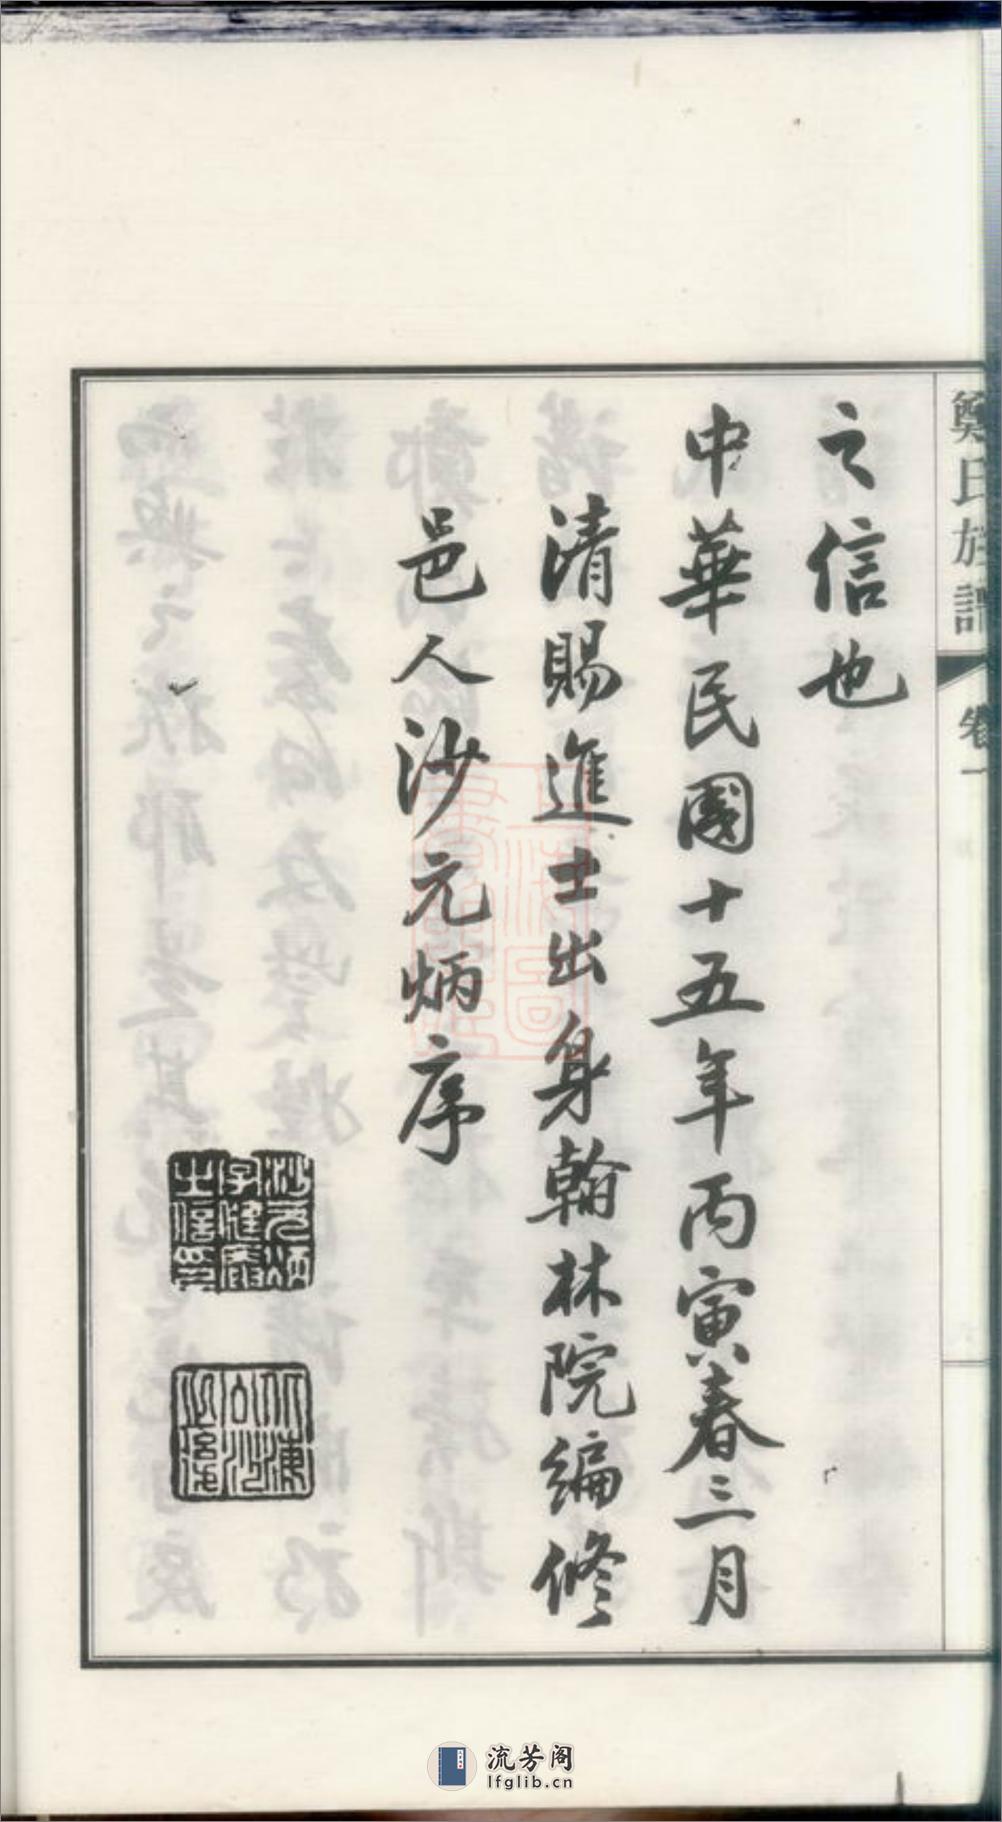 鄭氏族譜 卷一
之信也
中華民國十五年丙寅春三月
清賜進士出身翰林院編修
邑人沙元炳序
流芳阁
lfglib.cn